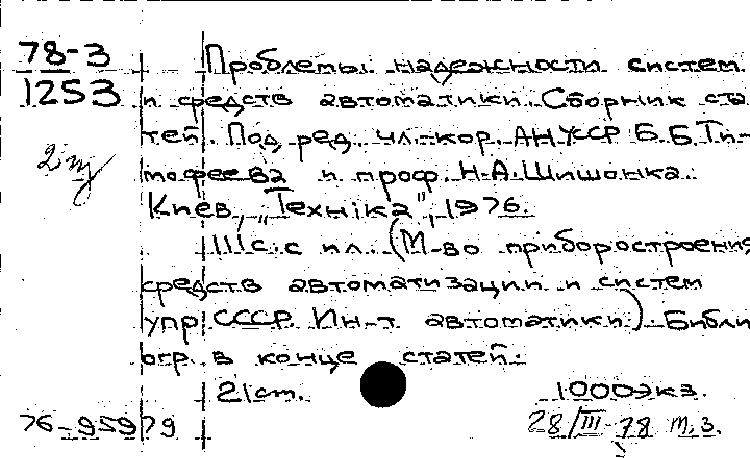 78-3
1253
Проблемы надежности систем
и средств автоматики. Сборник ста
тей. Под ред. чл.-кор. АН УССР Б.Б.Ти-
мофеева и проф. Н.А.Шишонка.
Киев, „Техніка", 1976.
111 с. с ил. (М-во приборостроения
средств автоматизации и систем
упр. СССР. Ин-т автоматики). Библи
огр. в конце статей.
21 ст. 1000 экз.
76-95979 28/III-78 т.з.